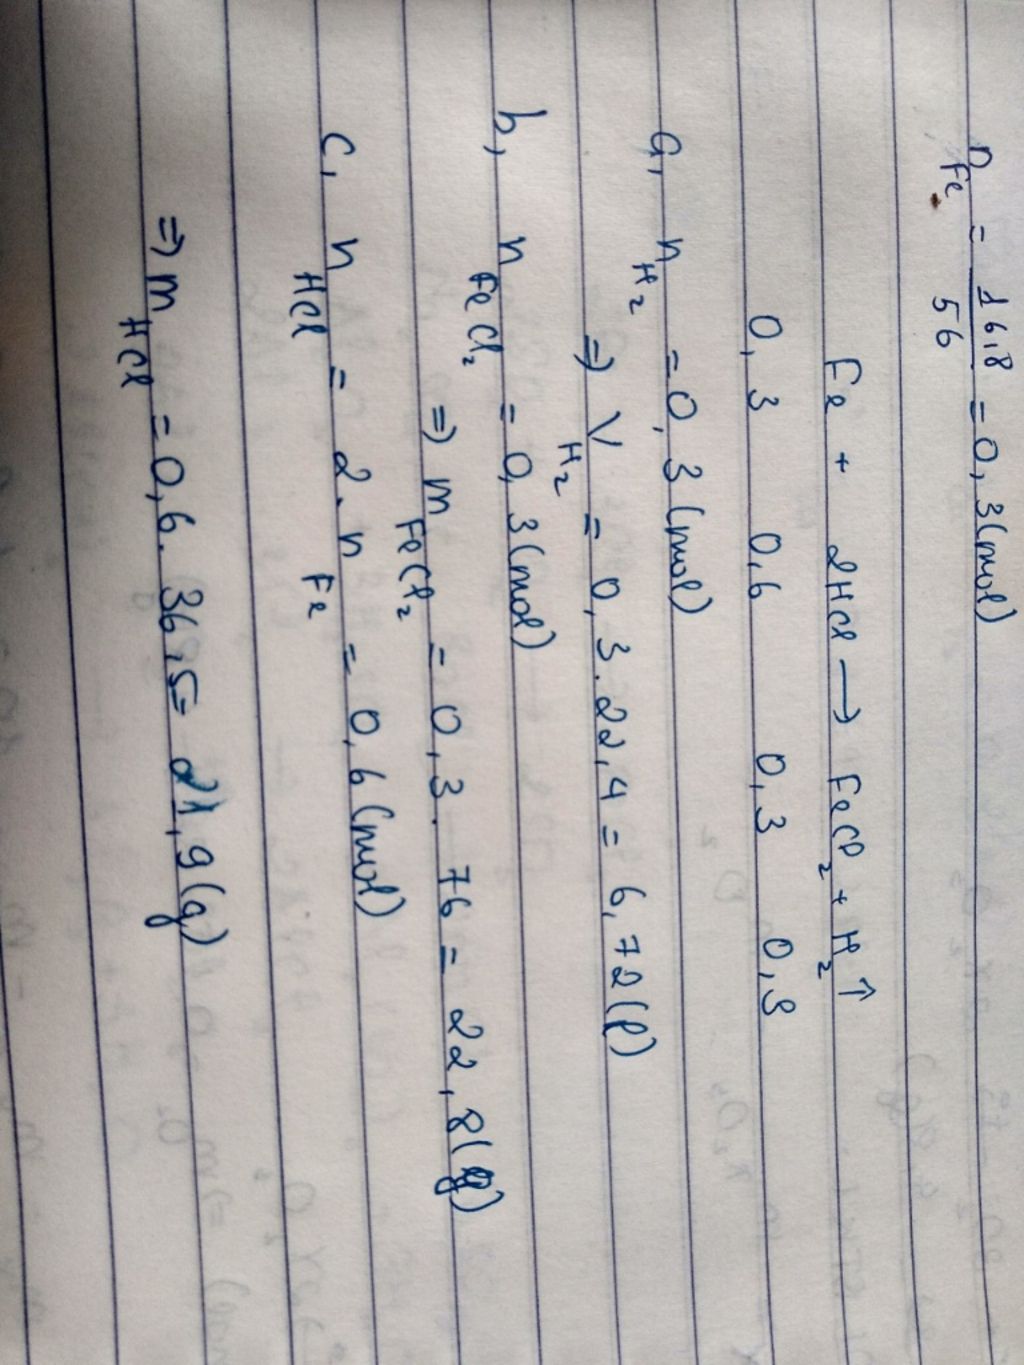 n Fe = 16,8 / 56 = 0,3 (mol)
Fe + 2HCl → FeCl2 + H2 ↑
0,3 0,6 0,3 0,3
a, n H2 = 0,3 (mol)
=> V H2 = 0,3 . 22,4 = 6,72 (l)
b, n FeCl2 = 0,3 (mol)
=> m FeCl2 = 0,3 . 76 = 22,8 (g)
c, n HCl = 2 . n Fe = 0,6 (mol)
=> m HCl = 0,6 . 36,5 = 21,9 (g)